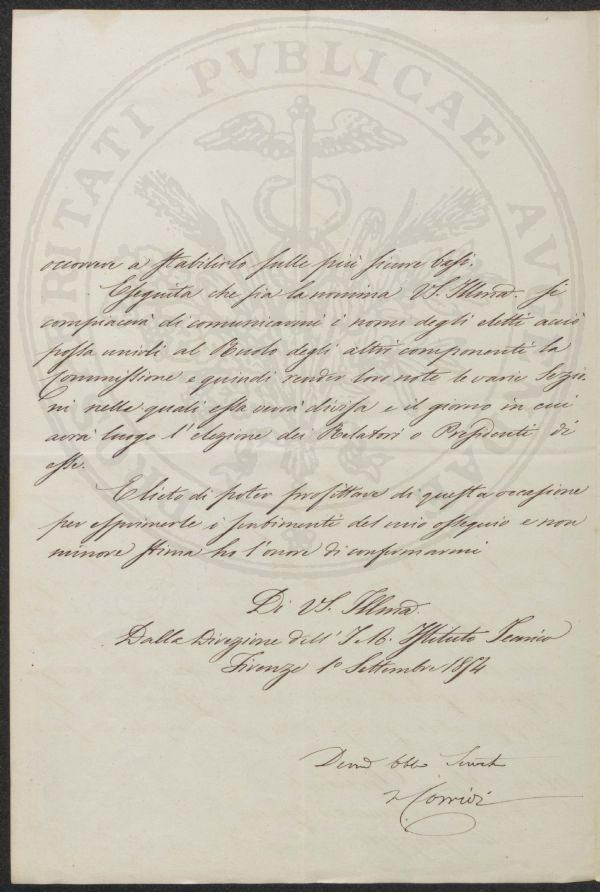 PROSPERITATI PVBLICAE AVGENDAE
occorrere a stabilirlo sulle più sicure basi.
Eseguita che sia la nomina VS. Illma. si
compiacerà di comunicarmi i nomi degli eletti acciò
possa unirli al Ruolo degli altri componenti la
Commissione e quindi render loro note le varie Sezio-
ni nelle quali essa verrà divisa e il giorno in cui
avrà luogo l'elezione dei Relatori o Presidenti di
esse.
E lieto di poter profittare di questa occasione
per esprimerle i sentimenti del mio ossequio e non
minore stima ho l'onore di confermarmi
Di VS. Illma.
Dalla Direzione dell'I. R. Istituto Tecnico
Firenze 1º Settembre 1854
Devmo Obbo Servit
Corridi